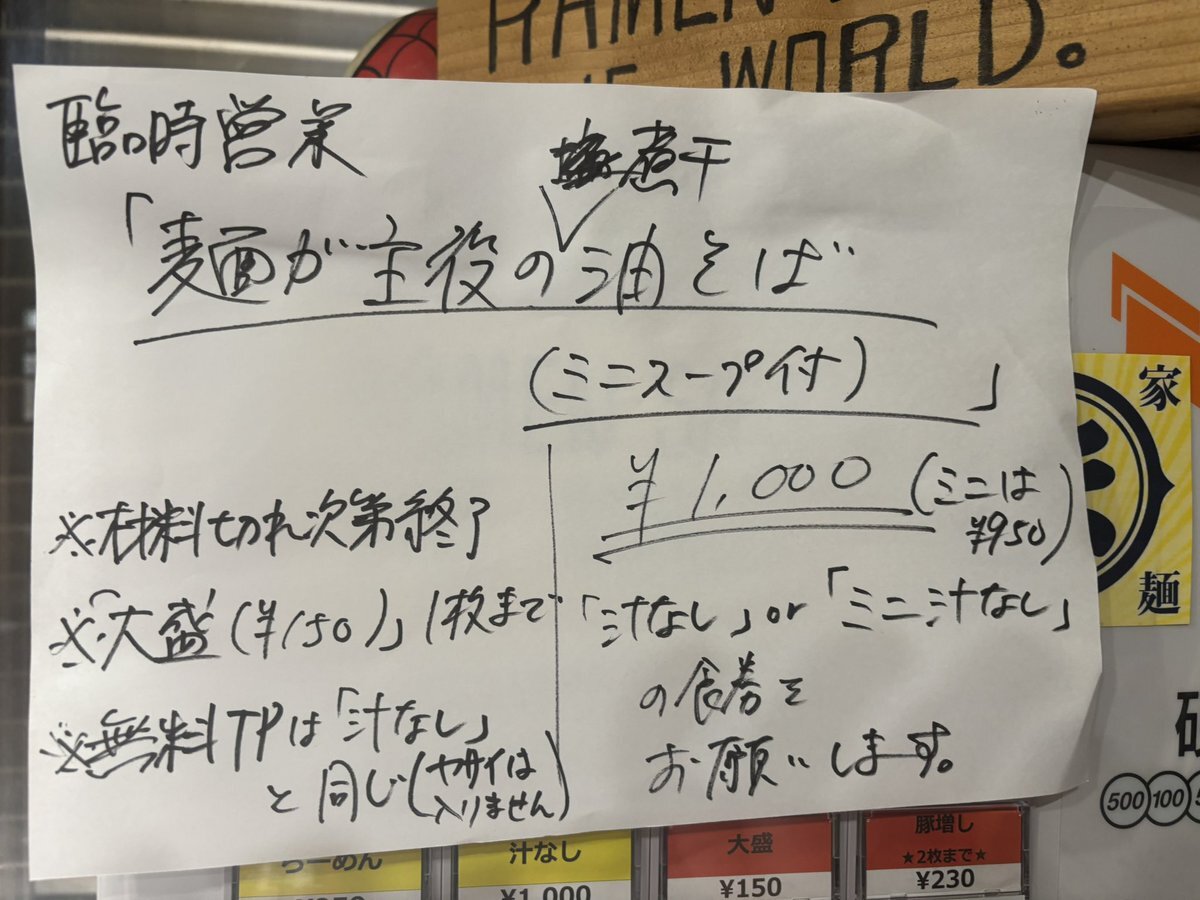 RAMEN
THE WORLD.
臨時営業
煮干
「麺が主役の油そば
(ミニスープ付) 」
¥1,000 (ミニは
¥950)
※材料切れ次第終了
※「大盛(¥150)」1枚まで
※無料TPは「汁なし」
と同じ(ヤサイは
入りません)
「汁なし」or「ミニ汁なし」
の食券を
お願いします。
家
麺
500 100
らーめん
汁なし
¥1,000
大盛
¥150
豚増し
★2枚まで★
¥230